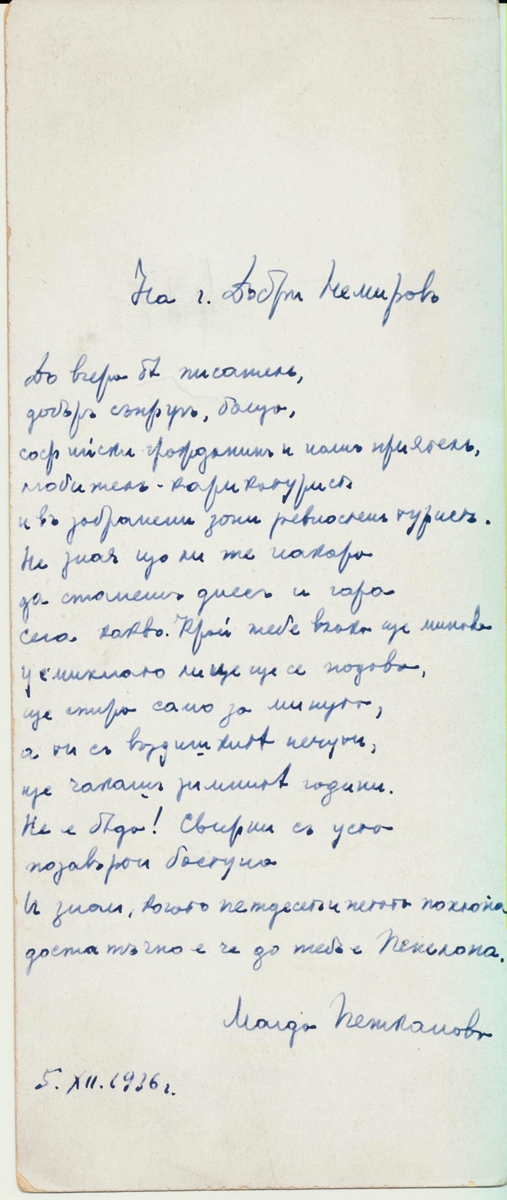 На г. Добри Немировъ
До вчера бѣ писатель,
добъръ съпругъ, баща,
софийски гражданинъ и нашъ приятель,
любитель-карикатуристъ
и въ забранени зони ревностенъ туристъ.
Не зная що ли те накара
да станешъ днесъ и гара
сега какво. Край тебе влака ще минава
усмихнато лице ще се подава,
ще спира само за минута,
а ти съ въздишкитѣ нечути,
ще чакашъ зимнитѣ години.
Не е бѣда! Свирни съ уста
позавърти бастуна
И знай, когато петдесеть и петата похлопа
достатъчно е че до тебъ е Пенелопа.
Магда Петканова
5. XII. 1936 г.